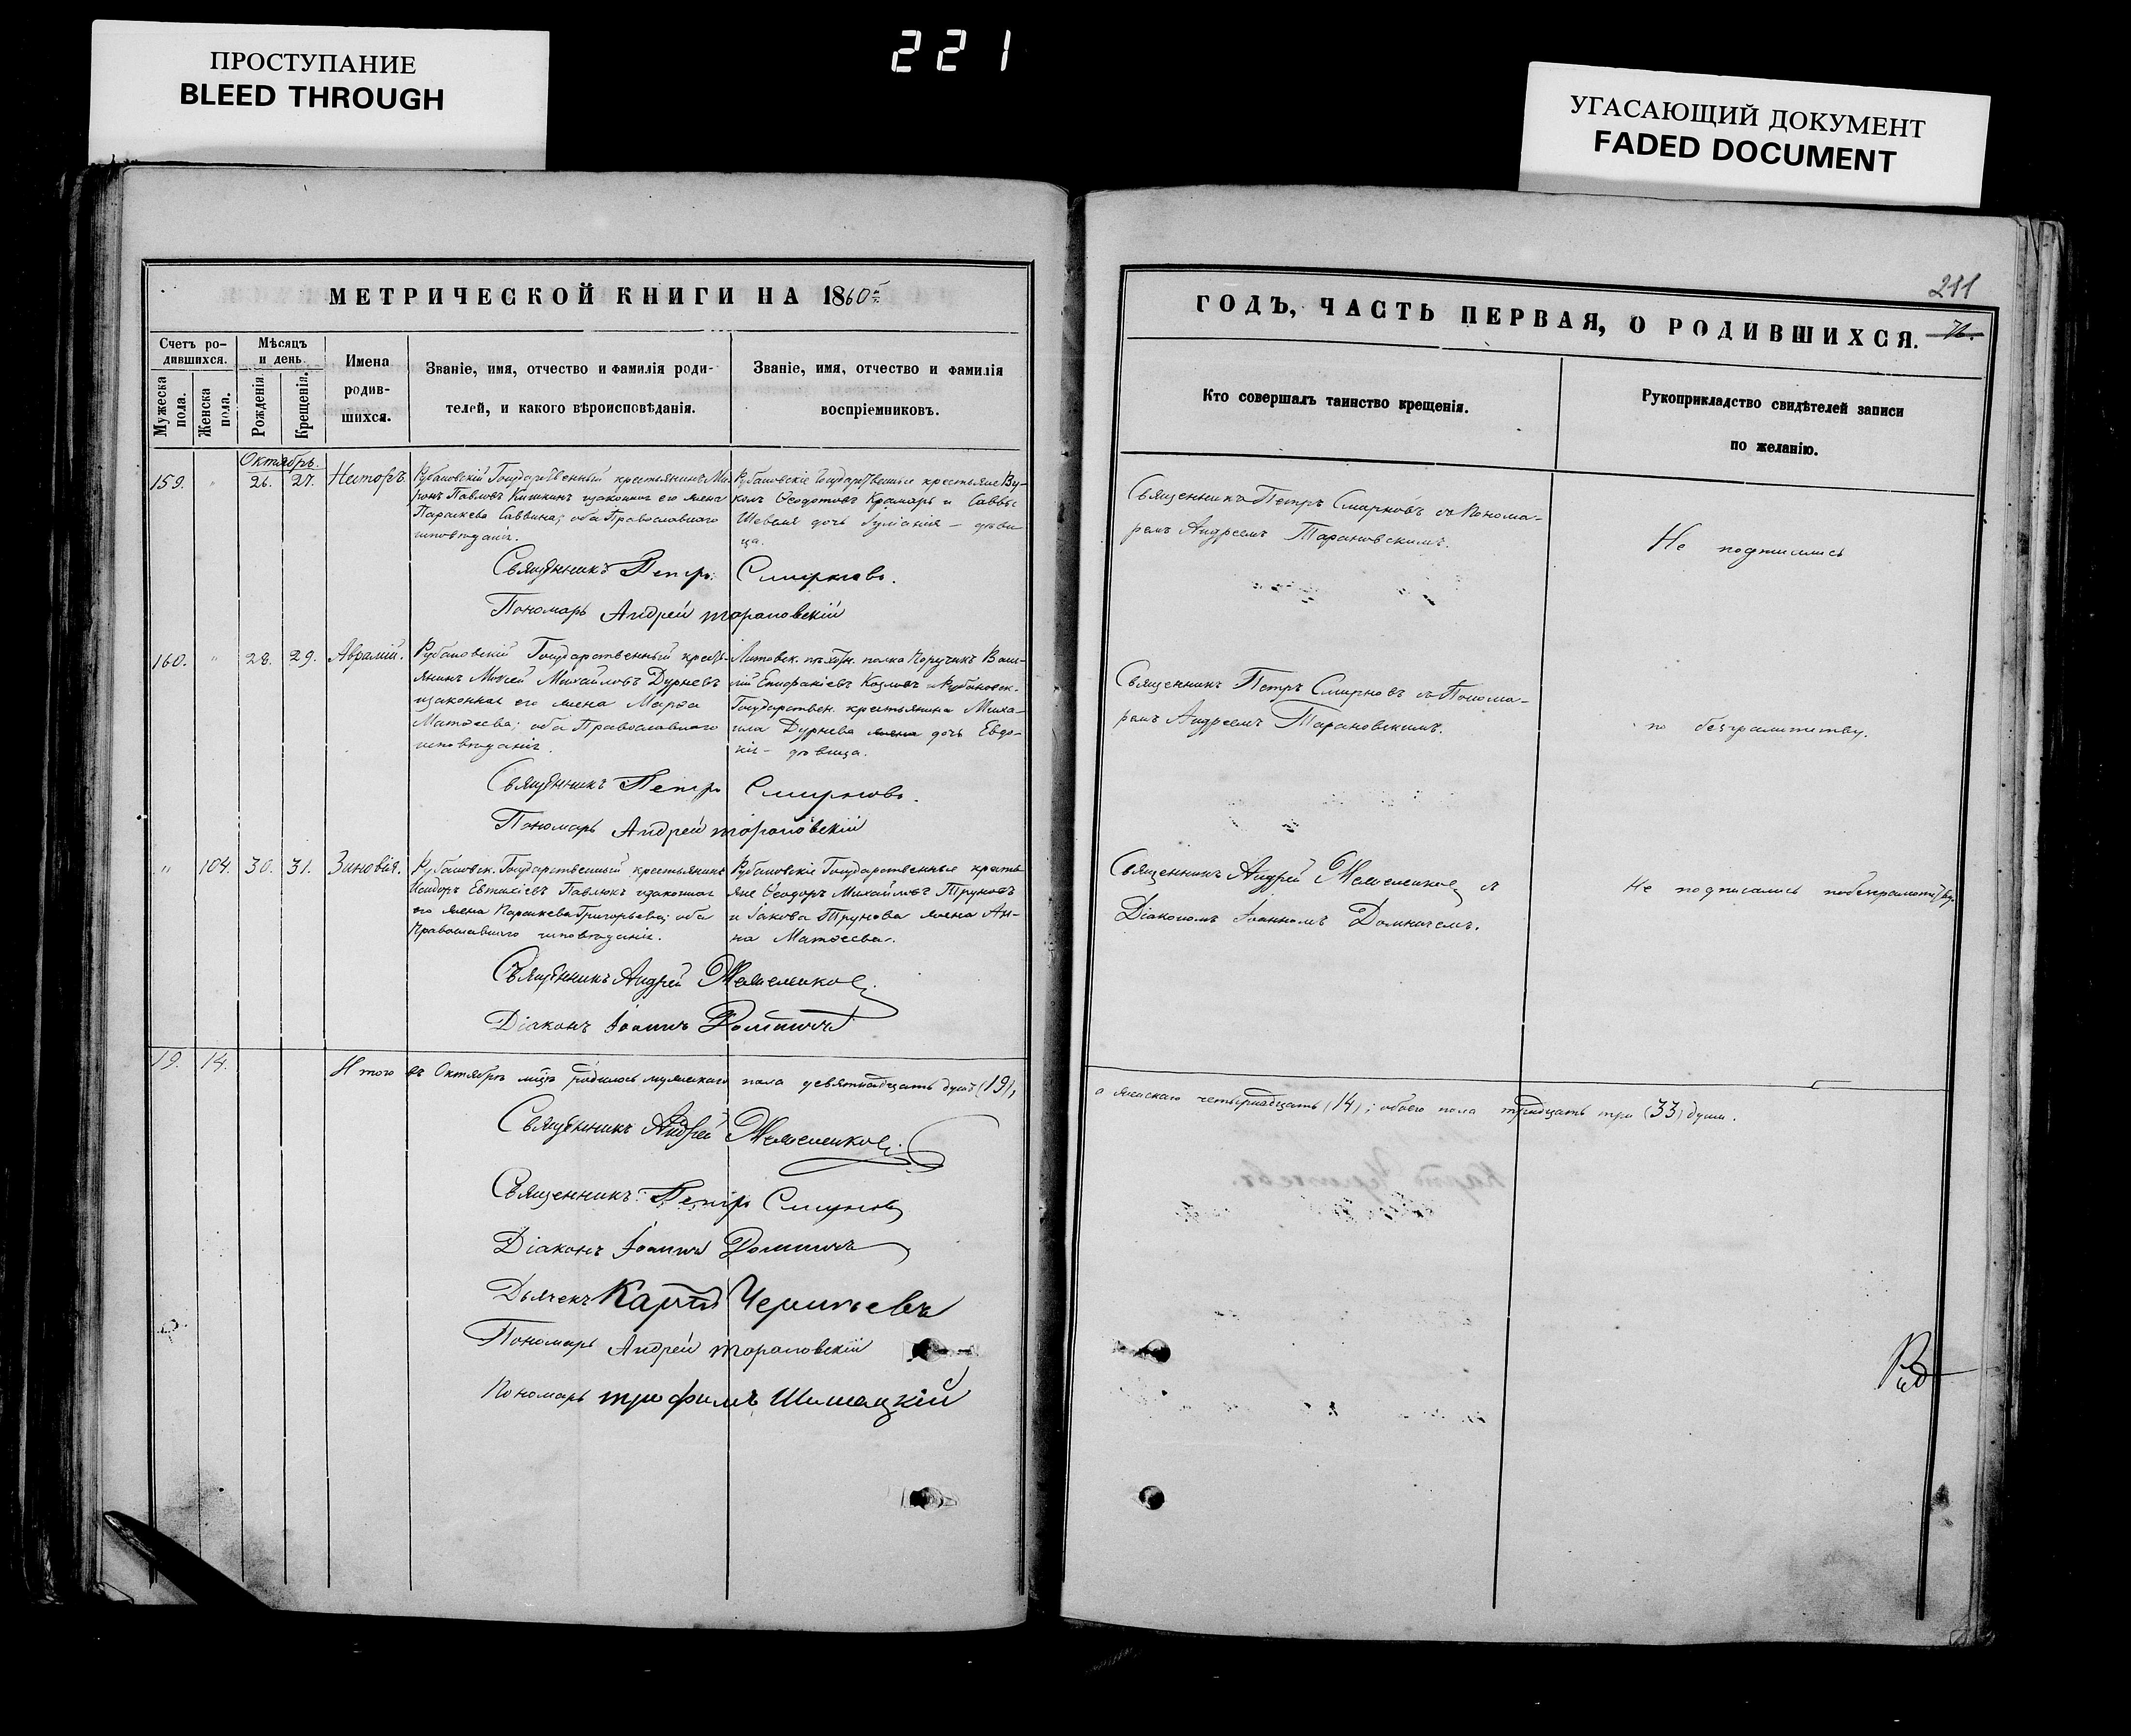 ПРОСТУПАНИЕ
BLEED THROUGH
221
УГАСАЮЩИЙ ДОКУМЕНТ
FADED DOCUMENT
МЕТРИЧЕСКОЙ КНИГИ НА 1860й
Счетъ ро-
дившихся.
Мужеска
пола.
Женска
пола.
Мѣсяцъ
и день
Рожденія
Крещенія.
Имена
родив-
шихся.
Званіе, имя, отчество и фамилія роди-
телей, и какого вѣроисповѣданія.
Званіе, имя, отчество и фамилія
воспріемниковъ.
Октябрь.
159. " 26. 27. Несторъ.
Рубановскій Государственный крестьянинъ Ми-
ронъ Павловъ Кишкинъ изаконная его жена
Параскева Саввина; оба Православнаго
исповѣданія.
Рубановскіе Государственные крестьяне Ву-
колъ Ѳеодотовъ Крамарь и Саввы
Шевеля дочь — дѣви
ца.
Священникъ Петръ Смирновъ.
Пономарь Андрей Тарановскій
160. " 28. 29. Аврамій.
Рубановскій Государственный кресть-
янинъ Моѵсей Михайловъ Дурневъ
изаконная его жена Марѳа
Матѳеева; оба Православнаго
исповѣданія.
Литовск. пѣхотн. полка Поручикъ Васи-
лій Епифаніевъ Козловъ и Рубановск.
Государствен. крестьянина Миха-
ила Дурнева жена дочь Евдо-
кія — дѣвица.
Священникъ Петръ Смирновъ.
Пономарь Андрей Тарановскій
" 104. 30. 31. Зиновія.
Рубановск. Государственный крестьянинъ
Исидоръ Евтихіевъ Павлюкъ изаконная
его жена Параскева Григорьева; оба
Православнаго исповѣданія.
Рубановскіе Государственные кресть-
яне Ѳеодоръ Михайловъ Труновъ
и Іакова Трунова жена Ан-
на Матѳеева.
Священникъ Андрей
Діаконъ Іоаннъ Домничъ
19. 14.
Итого въ Октябрѣ мцѣ родилось мужескаго пола девятнадцать душъ (19),
Священникъ Андрей
Священникъ Петръ Смирновъ
Діаконъ Іоаннъ Домничъ
Дьячекъ Карпъ
Пономарь Андрей Тарановскій
Пономарь Трофимъ Шишацкій
211
ГОДЪ, ЧАСТЬ ПЕРВАЯ, О РОДИВШИХСЯ.
Кто совершалъ таинство крещенія.
Рукоприкладство свидѣтелей записи
по желанію.
Священникъ Петръ Смирновъ съ Понома-
ремъ Андреемъ Тарановскимъ.
Не подписались
Священникъ Петръ Смирновъ съ Понома-
ремъ Андреемъ Тарановскимъ.
по безграмотству.
Священникъ Андрей съ
Діакономъ Іоанномъ Домничемъ.
Не подписались по безграмотству.
а женскаго четырнадцать (14); обоего пола тридцать три (33) души.